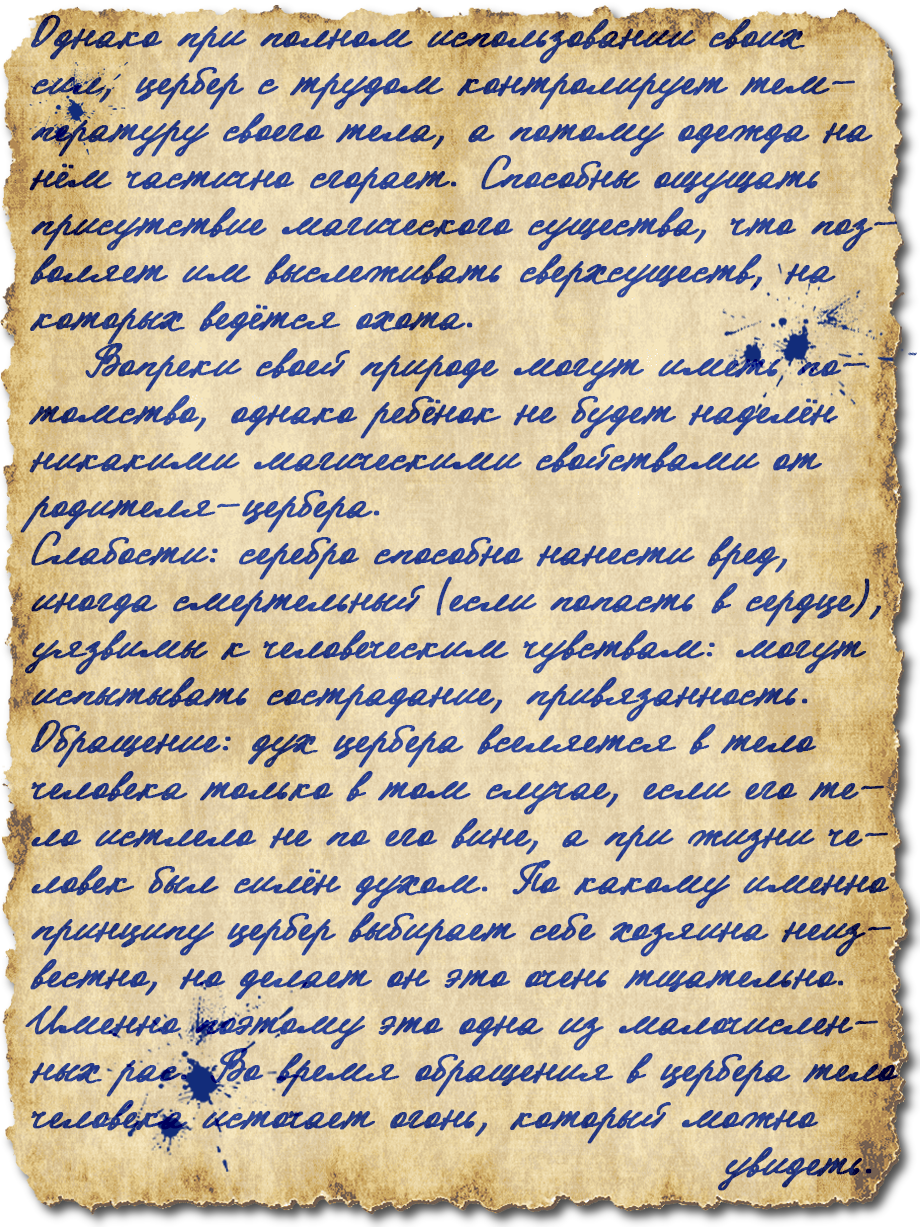 Однако при полном использовании своих
сил, цербер с трудом контролирует тем-
пературу своего тела, а потому одежда на
нём частично сгорает. Способны ощущать
присутствие магического существа, что поз-
воляет им выслеживать сверхсуществ, на
которых ведётся охота.
Вопреки своей природе могут иметь по-
томство, однако ребёнок не будет наделён
никакими магическими свойствами от
родителя-цербера.
Слабости: серебро способно нанести вред,
иногда смертельный (если попасть в сердце),
уязвимы к человеческим чувствам: могут
испытывать сострадание, привязанность.
Обращение: дух цербера вселяется в тело
человека только в том случае, если его те-
ло истлело не по его вине, а при жизни че-
ловек был силён духом. По какому именно
принципу цербер выбирает себе хозяина неиз-
вестно, но делает он это очень тщательно.
Именно поэтому это одна из малочислен-
ных рас. Во время обращения в цербера тело
человека источает огонь, который можно
увидеть.